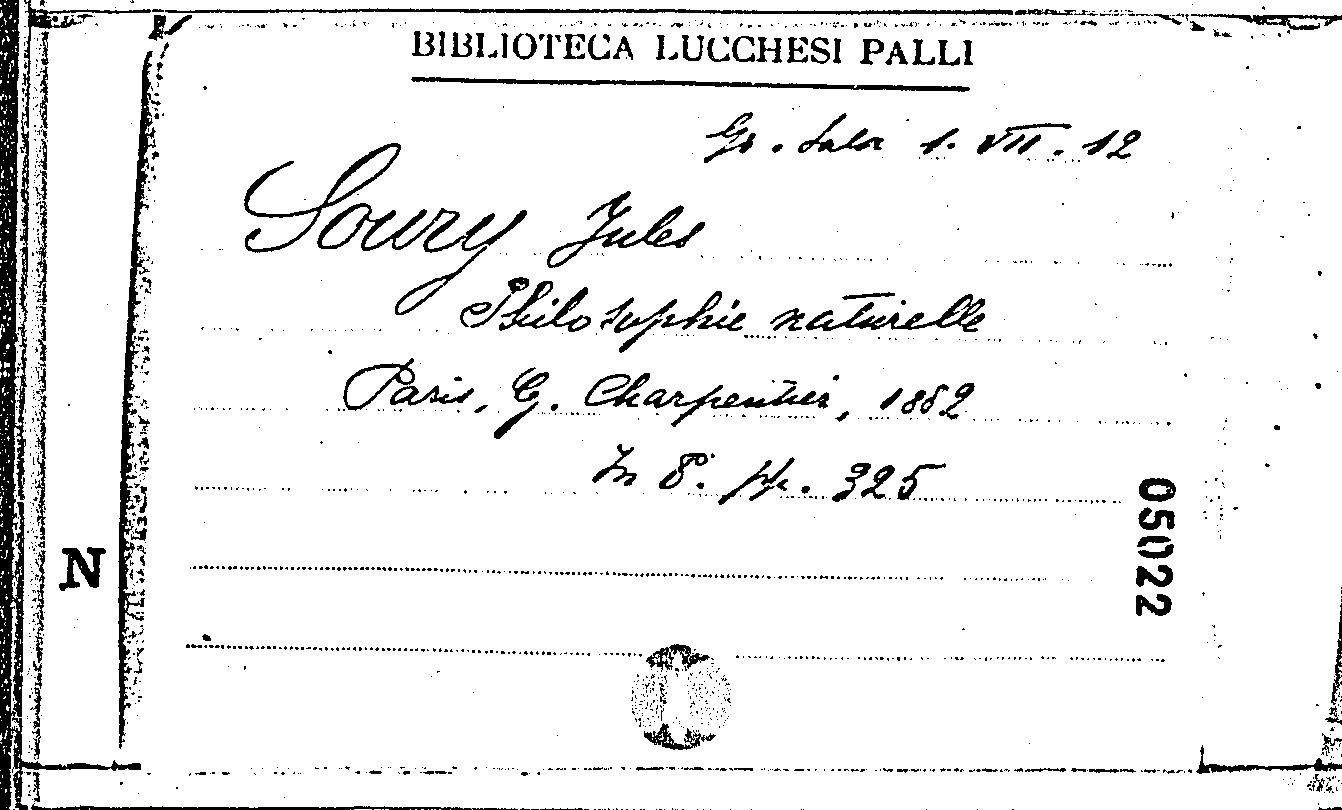 BIBLIOTECA LUCCHESI PALLI
Gr. Sala 1. VII. 12
Soury Jules
Philosophie naturelle
Paris, G. Charpentier, 1882
In 8.º pp. 325
05022
N